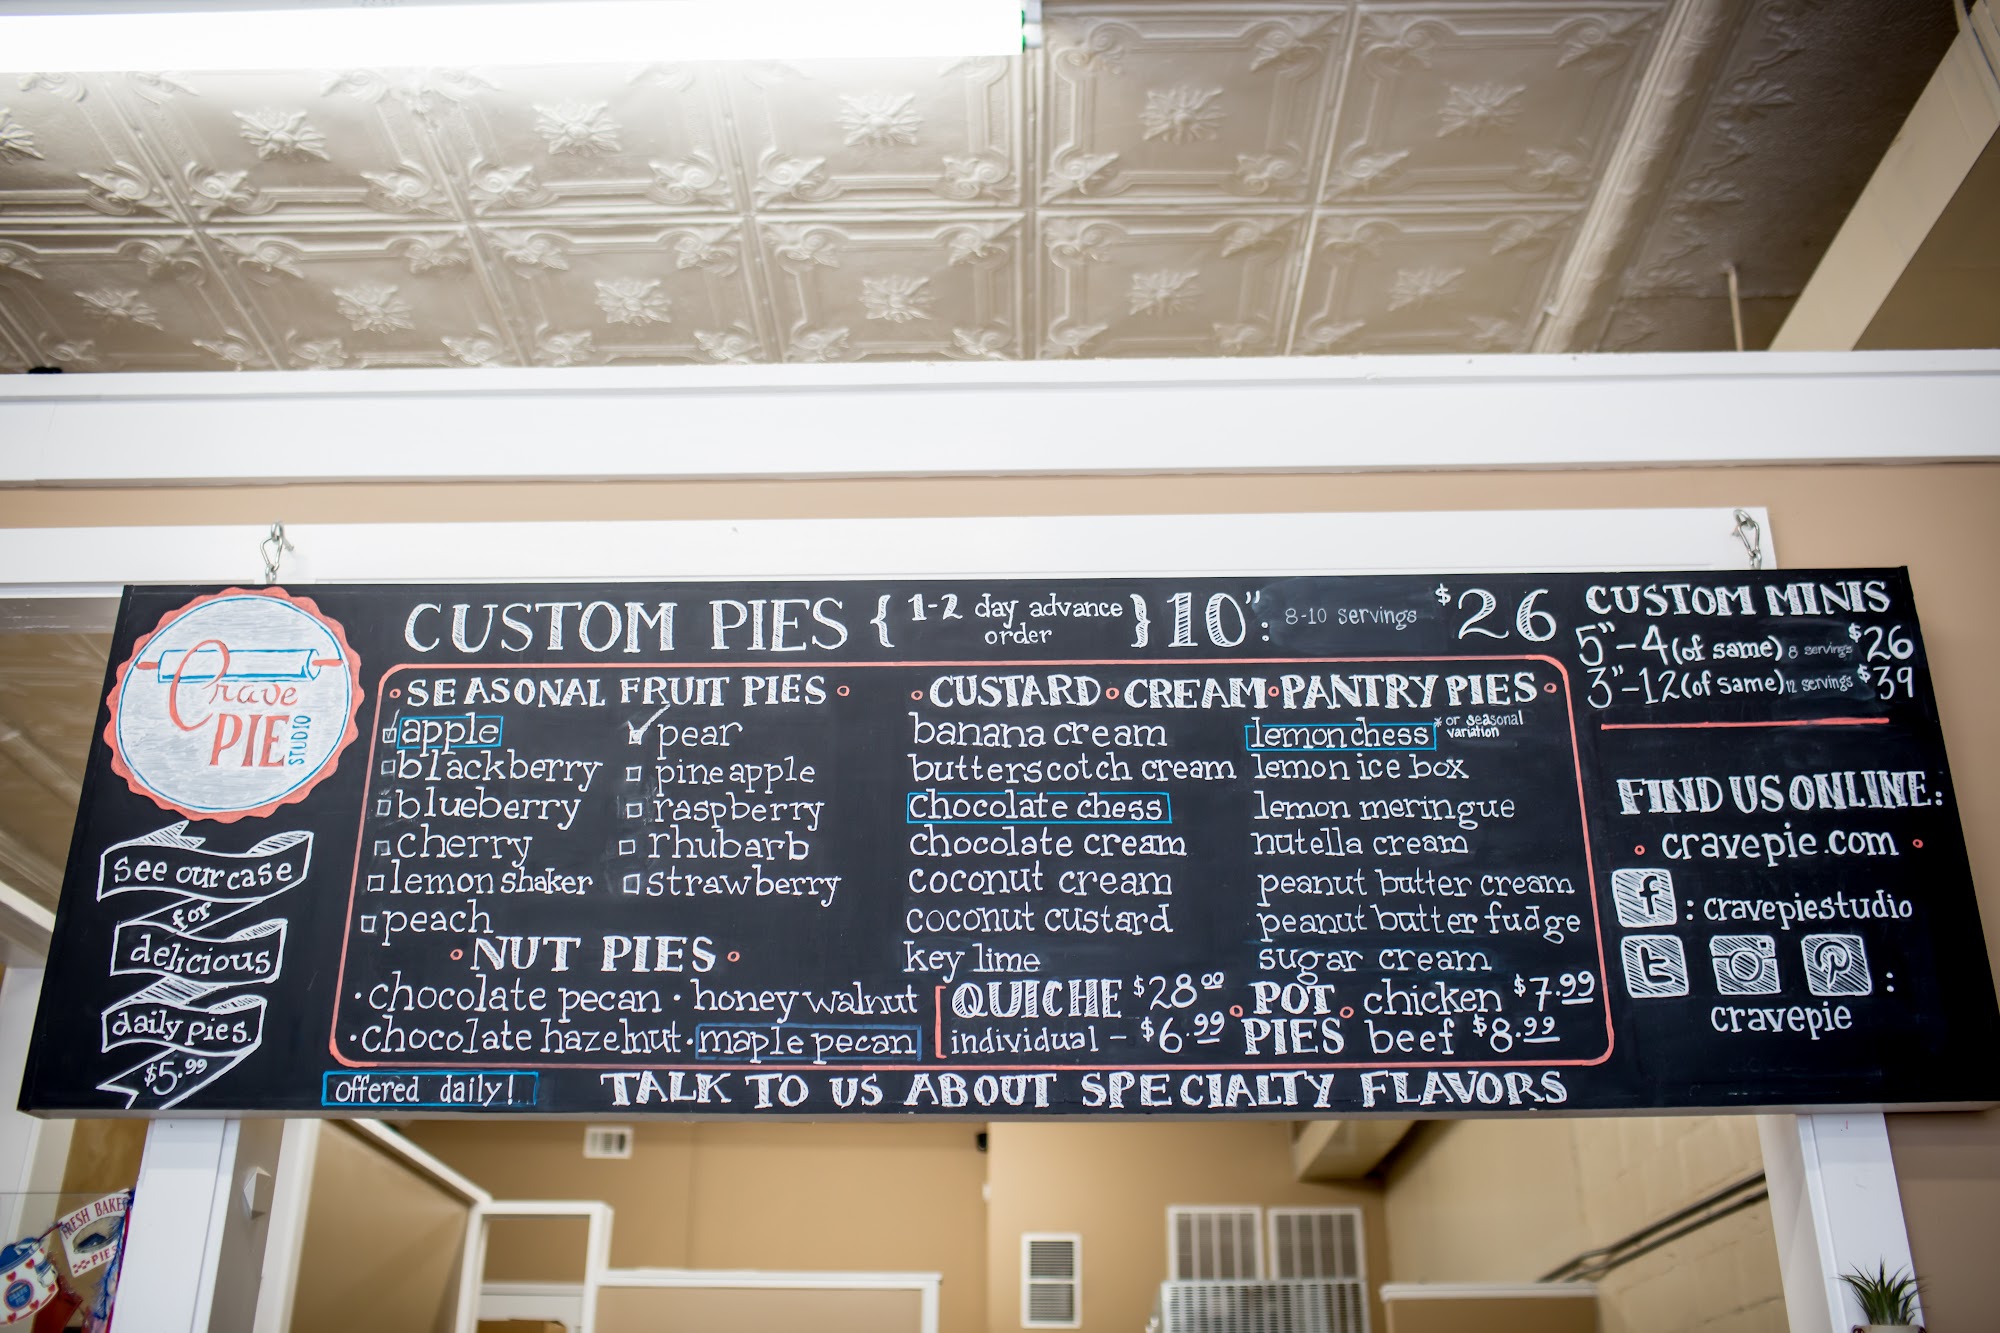 Crave
PIE
STUDIO
see our case
for
delicious
daily pies.
$5.99
CUSTOM PIES { 1-2 day advance order } 10": 8-10 servings $26
SEASONAL FRUIT PIES
apple
blackberry
blueberry
cherry
lemon shaker
peach
pear
pineapple
raspberry
rhubarb
strawberry
NUT PIES
• chocolate pecan • honey walnut
• chocolate hazelnut • maple pecan
offered daily!
CUSTARD • CREAM • PANTRY PIES
banana cream
butterscotch cream
chocolate chess
chocolate cream
coconut cream
coconut custard
key lime
lemon chess * or seasonal variation
lemon ice box
lemon meringue
nutella cream
peanut butter cream
peanut butter fudge
sugar cream
QUICHE $28.00
individual - $6.99
POT PIES
chicken $7.99
beef $8.99
TALK TO US ABOUT SPECIALTY FLAVORS
CUSTOM MINIS
5"-4 (of same) 8 servings $26
3"-12 (of same) 12 servings $39
FIND US ONLINE:
cravepie.com
f : cravepiestudio
t :
cravepie
FRESH BAKED
PIES